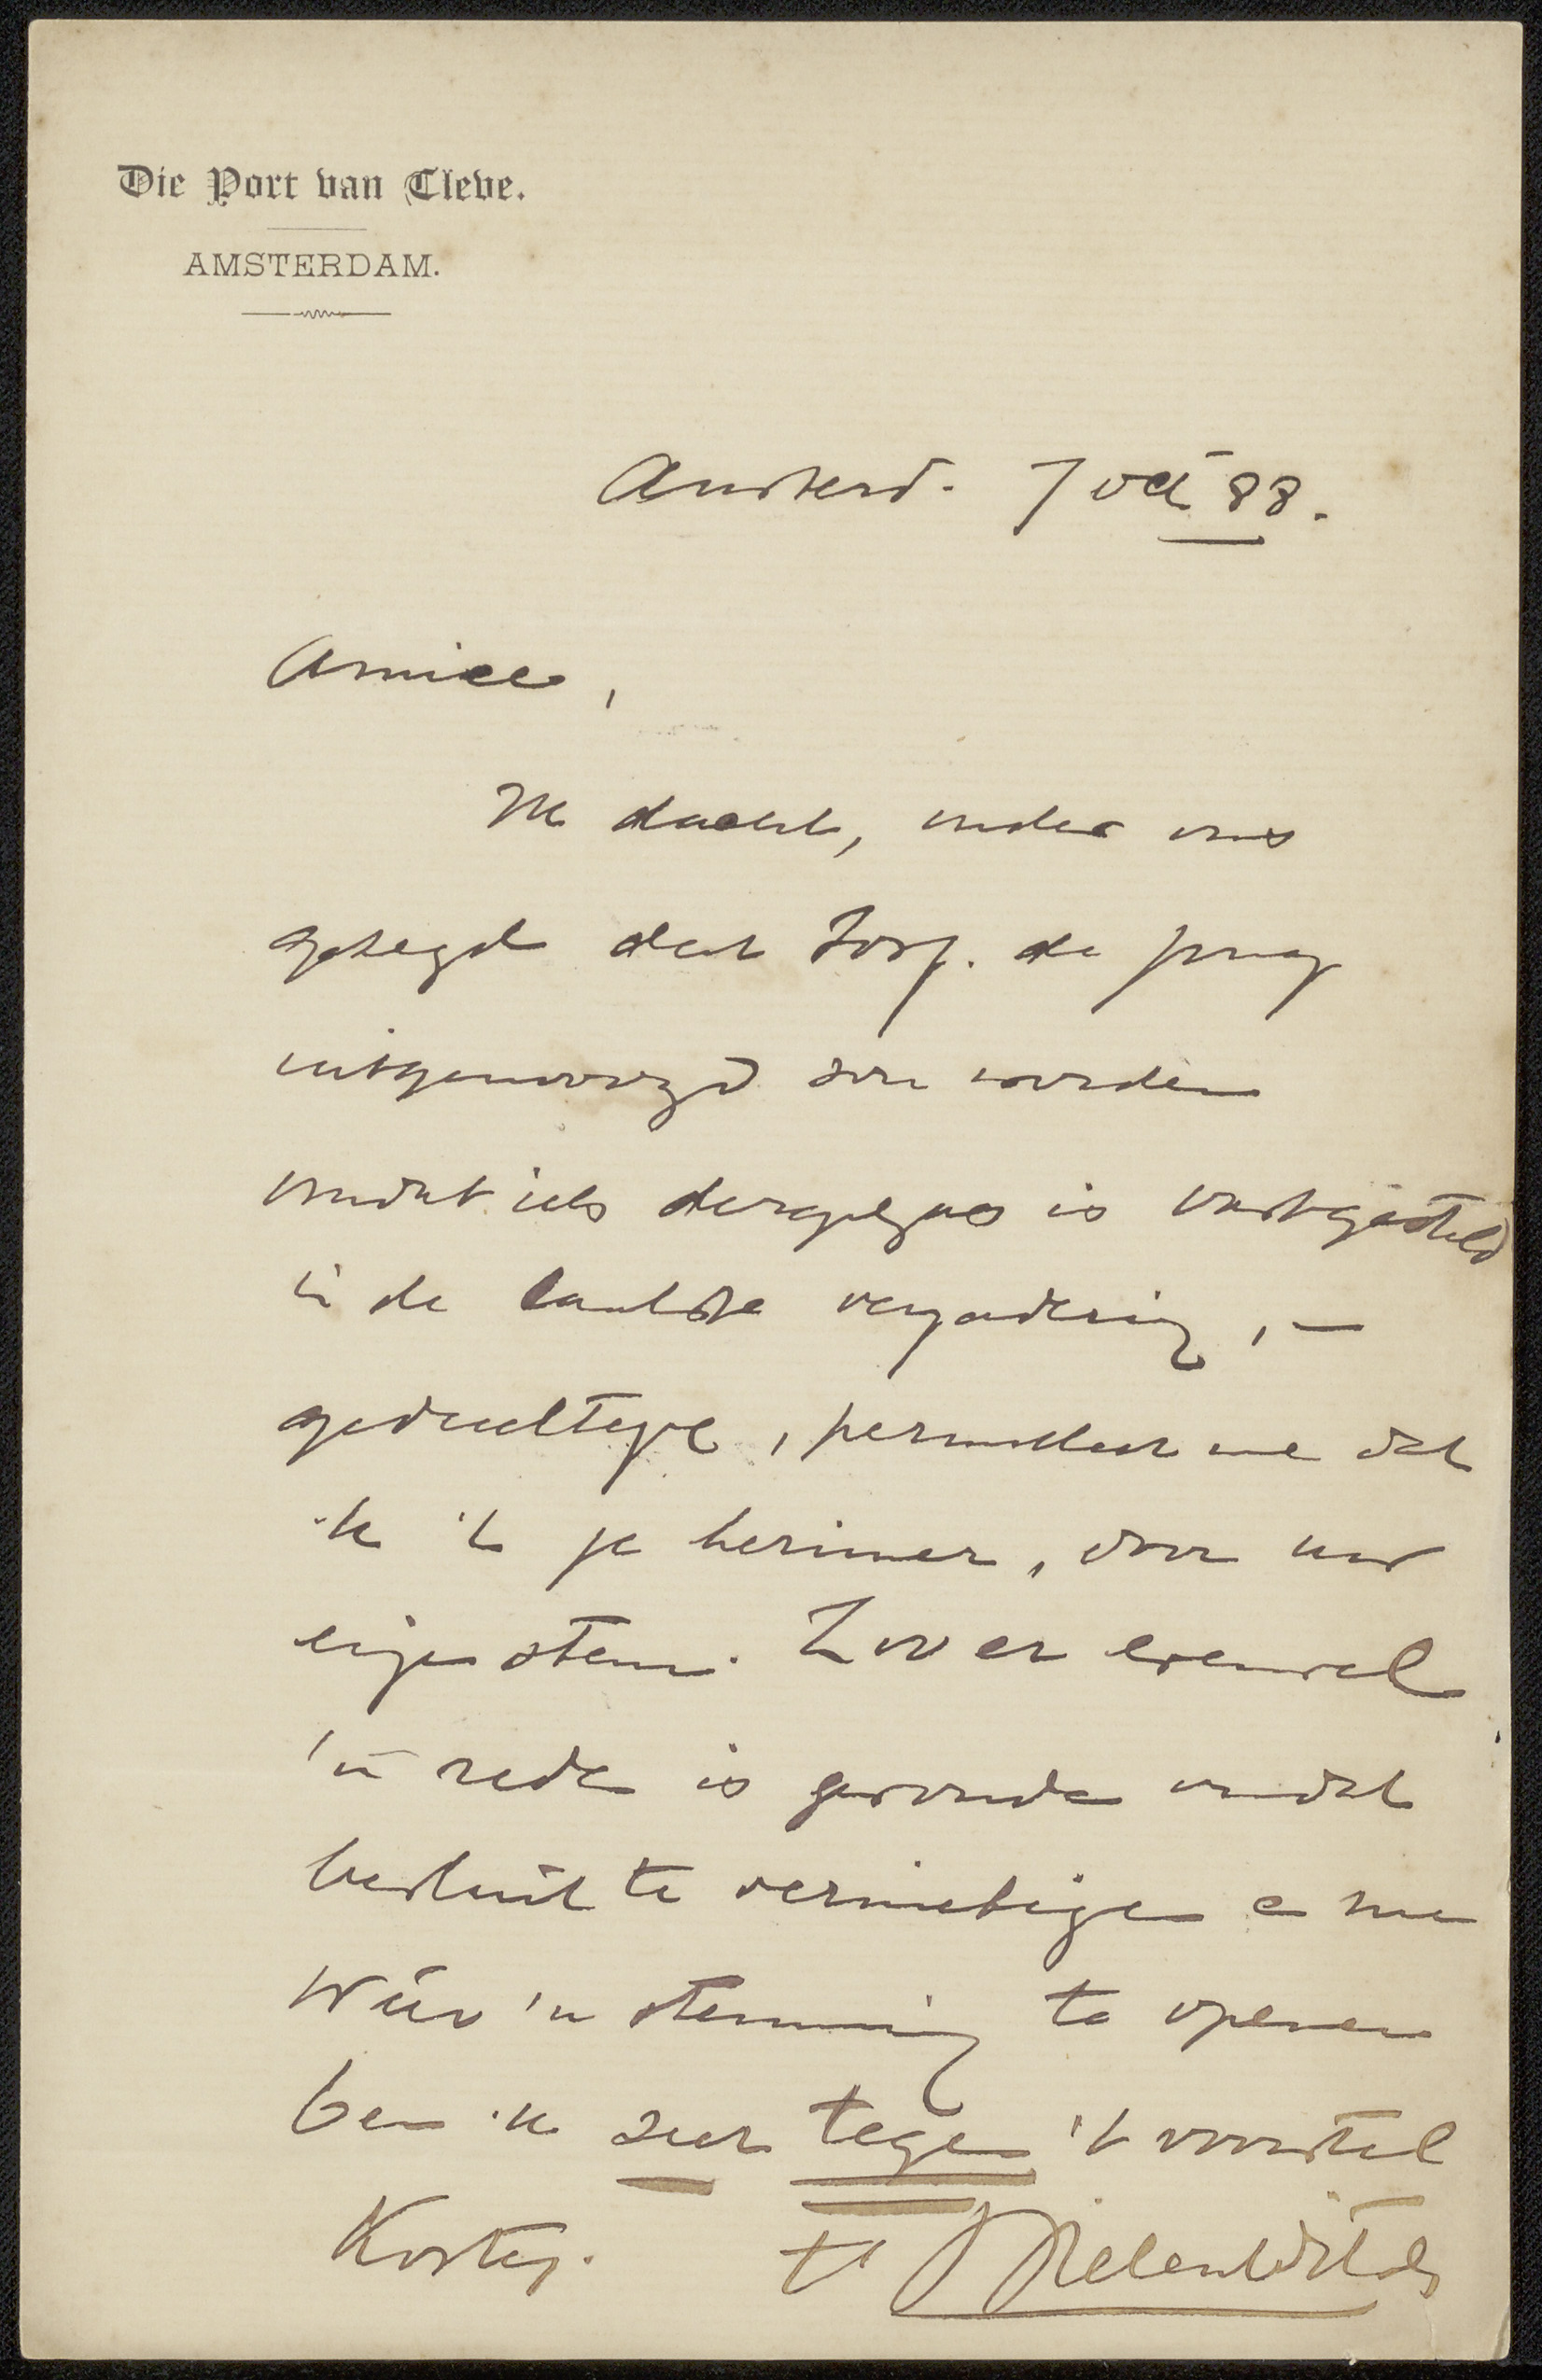 Die Port van Cleve.
AMSTERDAM.
Amsterd. 7 oct 88.
Amice,
Ik dacht, onder ons
gezegd dat Jos. de Jong
uitgenoodigd zou worden
omdat iets dergelijks is vastgesteld
in de laatste vergadering, —
gedeeltelijk, permitteer me dat
ik 't je herinner, door uw
eigen stem. Zoo er evenwel
'n rede is gevonden om dat
besluit te vernietigen en nu
wéér 'n stemming te openen
ben ik zeer tegen 't voorstel
Kortey. tt